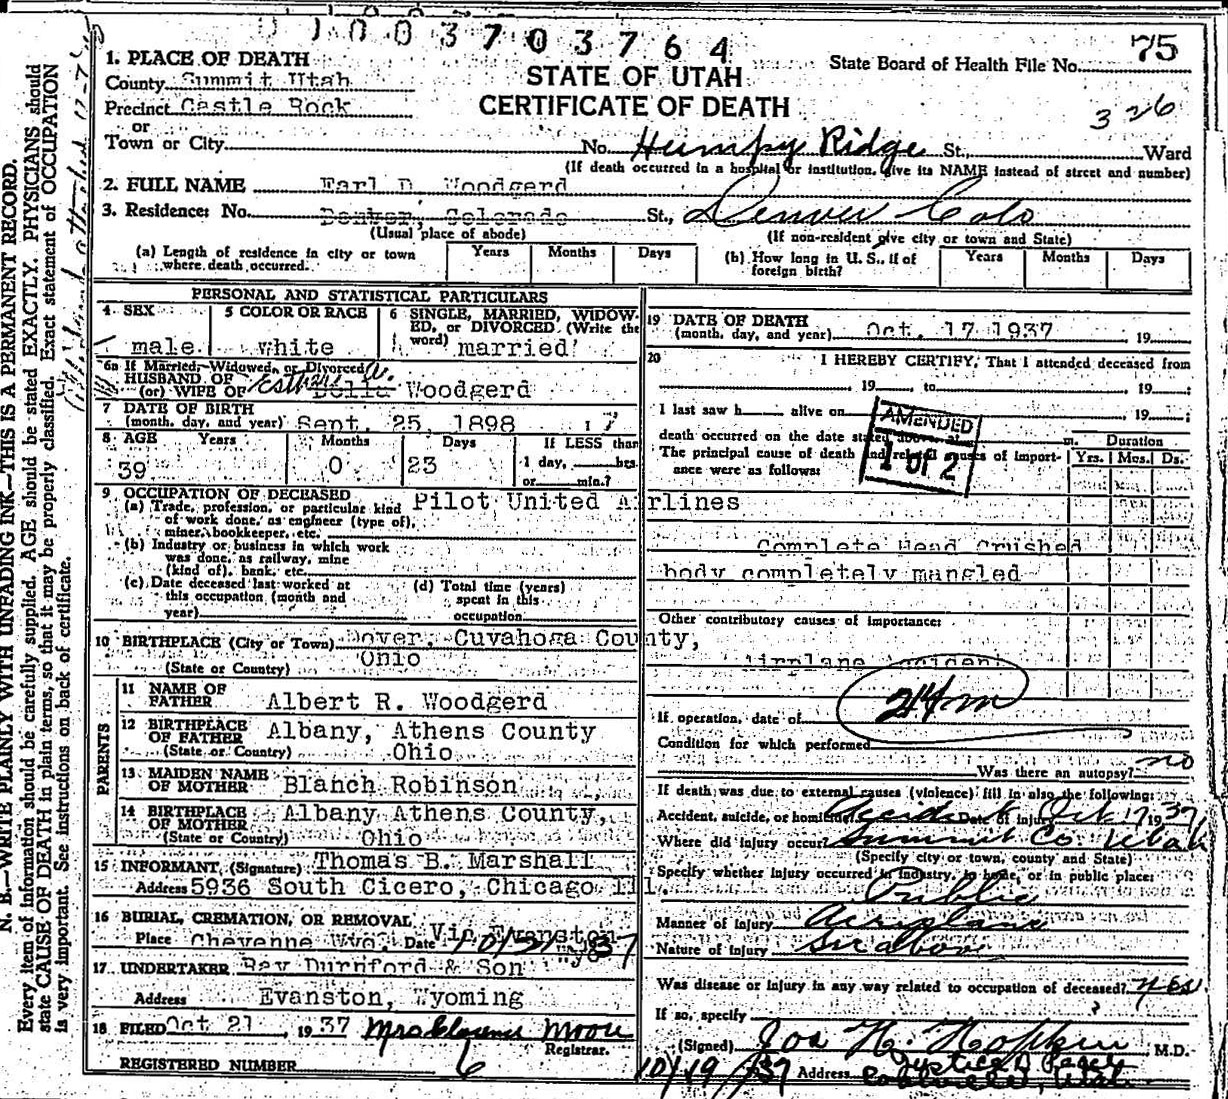 1003703764
1. PLACE OF DEATH
County Summit Utah
Precinct Castle Rock
or
Town or City
STATE OF UTAH
CERTIFICATE OF DEATH
State Board of Health File No. 75
326
No. Humpy Ridge St., Ward
(If death occurred in a hospital or institution, give its NAME instead of street and number)
2. FULL NAME Earl D. Woodgerd
3. Residence: No. Denver, Colorado St., Denver Colo
(Usual place of abode)
(If non-resident give city or town and State)
(a) Length of residence in city or town where death occurred.
Years Months Days
(b) How long in U. S., if of foreign birth?
Years Months Days
PERSONAL AND STATISTICAL PARTICULARS
4 SEX
male
5 COLOR OR RACE
white
6 SINGLE, MARRIED, WIDOWED, or DIVORCED (Write the word)
married
6a If Married, Widowed, or Divorced
HUSBAND OF
(or) WIFE OF Esther Della Woodgerd
7 DATE OF BIRTH
(month, day, and year) Sept. 25, 1898
8 AGE Years Months Days If LESS than
39 0 23 1 day, hrs.
or min.?
9 OCCUPATION OF DECEASED
(a) Trade, profession, or particular kind of work done, as engineer (type of), miner, bookkeeper, etc. Pilot United Airlines
(b) Industry or business in which work was done, as railway, mine (kind of), bank, etc.
(c) Date deceased last worked at this occupation (month and year)
(d) Total time (years) spent in this occupation
10 BIRTHPLACE (City or Town) Dover, Cuyahoga County,
(State or Country) Ohio
PARENTS
11 NAME OF FATHER Albert R. Woodgerd
12 BIRTHPLACE OF FATHER Albany, Athens County
(State or Country) Ohio
13 MAIDEN NAME OF MOTHER Blanch Robinson
14 BIRTHPLACE OF MOTHER Albany Athens County,
(State or Country) Ohio
15 INFORMANT, (Signature) Thomas B. Marshall
Address 5936 South Cicero, Chicago Ill.
16 BURIAL, CREMATION, OR REMOVAL Via Evanston
Place Cheyenne Wyo. Date 10/21/37
17 UNDERTAKER Ray Durnford & Son
Address Evanston, Wyoming
18 FILED Oct 21, 1937 Mrs Clarence Moore
Registrar.
REGISTERED NUMBER 6
19 DATE OF DEATH
(month, day, and year) Oct. 17 1937 19
20 I HEREBY CERTIFY, That I attended deceased from
19 , to 19
I last saw h alive on 19
death occurred on the date stated above, at m.
AMENDED
1 of 2
The principal cause of death and related causes of importance were as follows:
Duration
Yrs. Mos. Ds.
Complete Head Crushed
body completely mangled
Other contributory causes of importance:
Airplane Accident
If operation, date of
Condition for which performed
Was there an autopsy? no
If death was due to external causes (violence) fill in also the following:
Accident, suicide, or homicide Accident Date of injury Oct 17 1937
Where did injury occur? Summit Co. Utah
(Specify city or town, county and State)
Specify whether injury occurred in industry, in home, or in public place:
Public
Manner of injury Aeroplane
Nature of injury as above
Was disease or injury in any way related to occupation of deceased? yes
If so, specify
(Signed) Jos H. Hopkin M.D.
Justice of Peace
10/19/37 Address Coalville, Utah
N. B.—WRITE PLAINLY WITH UNFADING INK—THIS IS A PERMANENT RECORD.
Every item of information should be carefully supplied. AGE should be stated EXACTLY. PHYSICIANS should
state CAUSE OF DEATH in plain terms, so that it may be properly classified. Exact statement of OCCUPATION
is very important. See instructions on back of certificate.